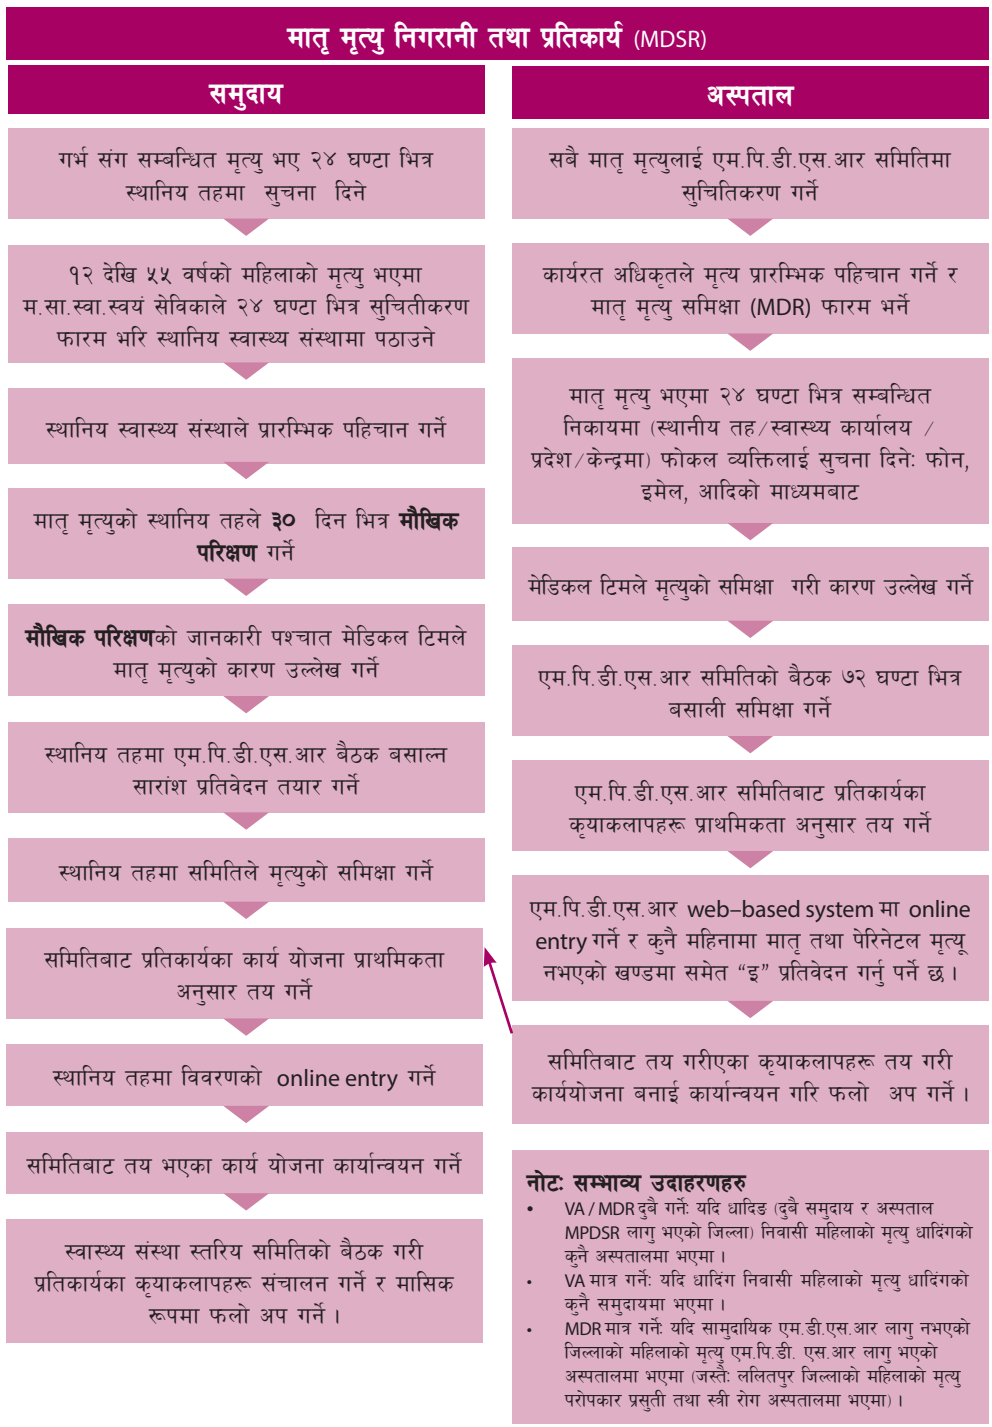 मातृ मृत्यु निगरानी तथा प्रतिकार्य (MDSR)
समुदाय
गर्भ संग सम्बन्धित मृत्यु भए २४ घण्टा भित्र
स्थानिय तहमा सुचना दिने
१२ देखि ५५ वर्षको महिलाको मृत्यु भएमा
म.सा.स्वा.स्वयं सेविकाले २४ घण्टा भित्र सुचितीकरण
फारम भरि स्थानिय स्वास्थ्य संस्थामा पठाउने
स्थानिय स्वास्थ्य संस्थाले प्रारम्भिक पहिचान गर्ने
मातृ मृत्युको स्थानिय तहले ३० दिन भित्र मौखिक
परिक्षण गर्ने
मौखिक परिक्षणको जानकारी पश्चात मेडिकल टिमले
मातृ मृत्युको कारण उल्लेख गर्ने
स्थानिय तहमा एम.पि.डी.एस.आर बैठक बसाल्न
सारांश प्रतिवेदन तयार गर्ने
स्थानिय तहमा समितिले मृत्युको समिक्षा गर्ने
समितिबाट प्रतिकार्यका कार्य योजना प्राथमिकता
अनुसार तय गर्ने
स्थानिय तहमा विवरणको online entry गर्ने
समितिबाट तय भएका कार्य योजना कार्यान्वयन गर्ने
स्वास्थ्य संस्था स्तरिय समितिको बैठक गरी
प्रतिकार्यका कृयाकलापहरू संचालन गर्ने र मासिक
रूपमा फलो अप गर्ने ।
अस्पताल
सबै मातृ मृत्युलाई एम.पि.डी.एस.आर समितिमा
सुचितिकरण गर्ने
कार्यरत अधिकृतले मृत्य प्रारम्भिक पहिचान गर्ने र
मातृ मृत्यु समिक्षा (MDR) फारम भर्ने
मातृ मृत्यु भएमा २४ घण्टा भित्र सम्बन्धित
निकायमा (स्थानीय तह/स्वास्थ्य कार्यालय /
प्रदेश/केन्द्रमा) फोकल व्यक्तिलाई सुचना दिने: फोन,
इमेल, आदिको माध्यमबाट
मेडिकल टिमले मृत्युको समिक्षा गरी कारण उल्लेख गर्ने
एम.पि.डी.एस.आर समितिको बैठक ७२ घण्टा भित्र
बसाली समिक्षा गर्ने
एम.पि.डी.एस.आर समितिबाट प्रतिकार्यका
कृयाकलापहरू प्राथमिकता अनुसार तय गर्ने
एम.पि.डी.एस.आर web–based system मा online
entry गर्ने र कुनै महिनामा मातृ तथा पेरिनेटल मृत्यू
नभएको खण्डमा समेत “इ” प्रतिवेदन गर्नु पर्ने छ ।
समितिबाट तय गरीएका कृयाकलापहरू तय गरी
कार्ययोजना बनाई कार्यान्वयन गरि फलो अप गर्ने ।
नोट: सम्भाव्य उदाहरणहरु
• VA / MDR दुबै गर्ने: यदि धादिङ (दुबै समुदाय र अस्पताल
MPDSR लागु भएको जिल्ला) निवासी महिलाको मृत्यु धादिंगको
कुनै अस्पतालमा भएमा ।
• VA मात्र गर्ने: यदि धादिंग निवासी महिलाको मृत्यु धादिंगको
कुनै समुदायमा भएमा ।
• MDR मात्र गर्ने: यदि सामुदायिक एम.डी.एस.आर लागु नभएको
जिल्लाको महिलाको मृत्यु एम.पि.डी. एस.आर लागु भएको
अस्पतालमा भएमा (जस्तै: ललितपुर जिल्लाको महिलाको मृत्यु
परोपकार प्रसुती तथा स्त्री रोग अस्पतालमा भएमा) ।